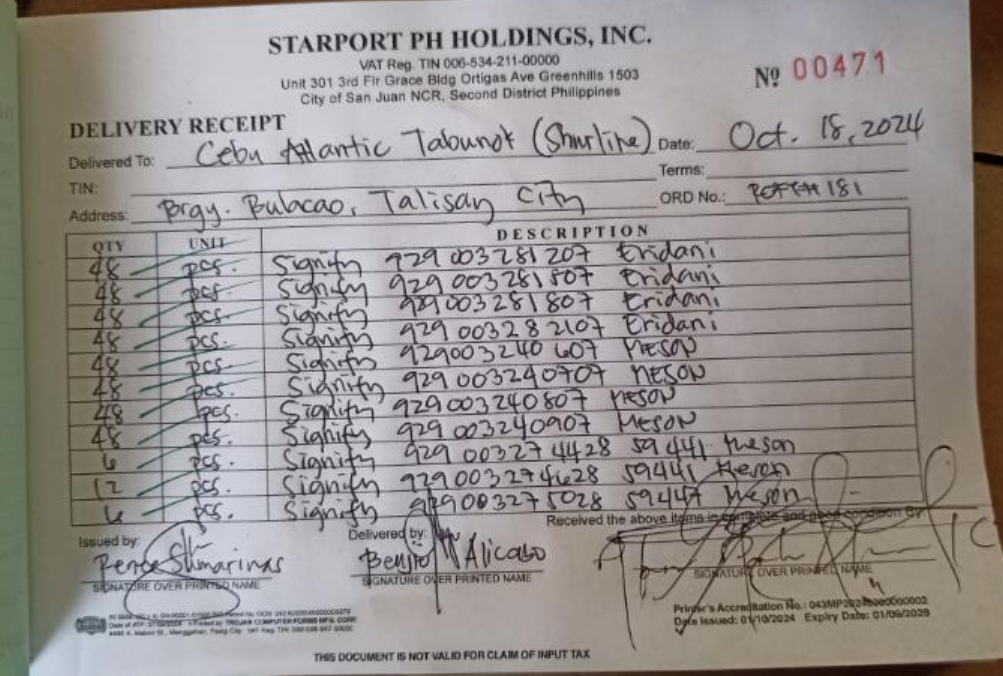 STARPORT PH HOLDINGS, INC.
VAT Reg. TIN 006-534-211-00000
Unit 301 3rd Flr Grace Bldg Ortigas Ave Greenhills 1503
City of San Juan NCR, Second District Philippines
Nº 00471
DELIVERY RECEIPT
Delivered To: Cebu Atlantic Tabunok (Shurline) Date: Oct. 18, 2024
TIN: Terms:
Address: Brgy. Bulacao, Talisay City ORD No.:
QTY UNIT DESCRIPTION
48 pcs. Signify 929 003281207 Eridani
48 pcs. Signify 929 003281507 Eridani
48 pcs. Signify 929003281807 Eridani
48 pcs. Signify 929 003282107 Eridani
48 pcs. Signify 929003240607 MESON
48 pcs. Signify 929 003240707 MESON
48 pcs. Signify 929003240807 MESON
48 pcs. Signify 929 003240907 MESON
6 pcs. Signify 929 003274428 59441 Meson
12 pcs. Signify 929003274628 59441 Meson
6 pcs. Signify 929003275028 59447 Meson
Received the above items in complete and good condition By
Issued by: Delivered by:
SIGNATURE OVER PRINTED NAME
SIGNATURE OVER PRINTED NAME
SIGNATURE OVER PRINTED NAME
Printer's Accreditation No.: 043MP
Date Issued: 01/10/2024 Expiry Date: 01/09/2029
THIS DOCUMENT IS NOT VALID FOR CLAIM OF INPUT TAX